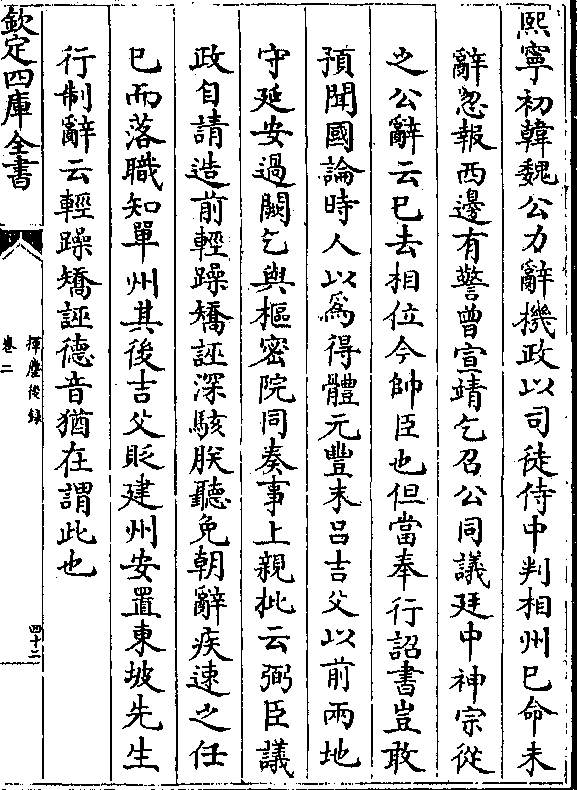 熙寧初韓魏公力辭機政以司徒侍中判相州巳命未
辭忽報西邊有警曾宣靖乞召公同議廷中神宗從
之公辭云巳去相位今帥臣也但當奉行詔書豈敢
預聞國論時人以爲得體元豐末呂吉父以前兩地
守延安過闕乞與樞密院同奏事上親批云弼臣議
政自請造前輕躁矯誣深駭朕聽免朝辭疾速之任
巳而落職知單州其後吉父貶建州安置東坡先生
行制辭云輕躁矯誣德音猶在謂此也
欽定四庫全書
揮麈後錄
卷二
四十二